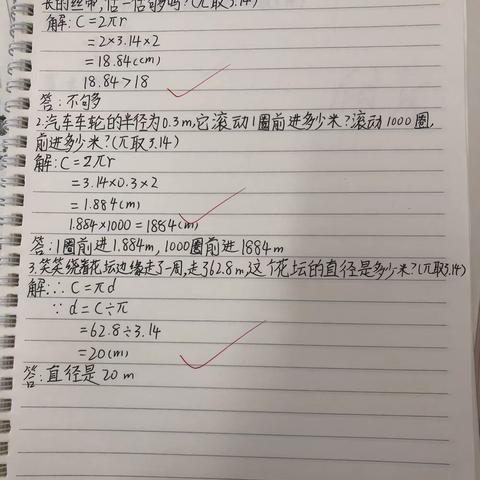 长的丝带,估一估够吗?(兀取3.14)
解:C=2πr
=2×3.14×2
=18.84(cm)
18.84>18
答:不够
2.汽车车轮的半径为0.3m,它滚动1圈前进多少米?滚动1000圈,
前进多少米?(兀取3.14)
解:C=2πr
=3.14×0.3×2
=1.884(m)
1.884×1000=1884(m)
答:1圈前进1.884m,1000圈前进1884m
3.笑笑绕着花坛边缘走了一周,走了62.8m,这个花坛的直径是多少米?(兀取3.14)
解:∴C=πd
∵d=C÷π
=62.8÷3.14
=20(m)
答:直径是20m